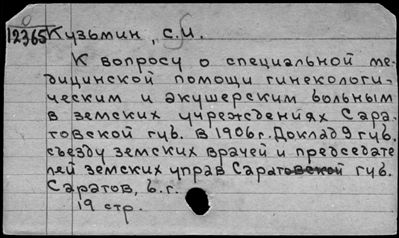 0
12365 Кузьмин, С.И.
К вопросу о специальной ме-
дицинской помощи гинекологи-
ческим и акушерским больным
в земских учреждениях Сара-
товской губ. в 1906 г. Доклад 9 губ.
съезду земских врачей и председате
лей земских управ Саратовской губ.
Саратов, б.г.
19 стр.